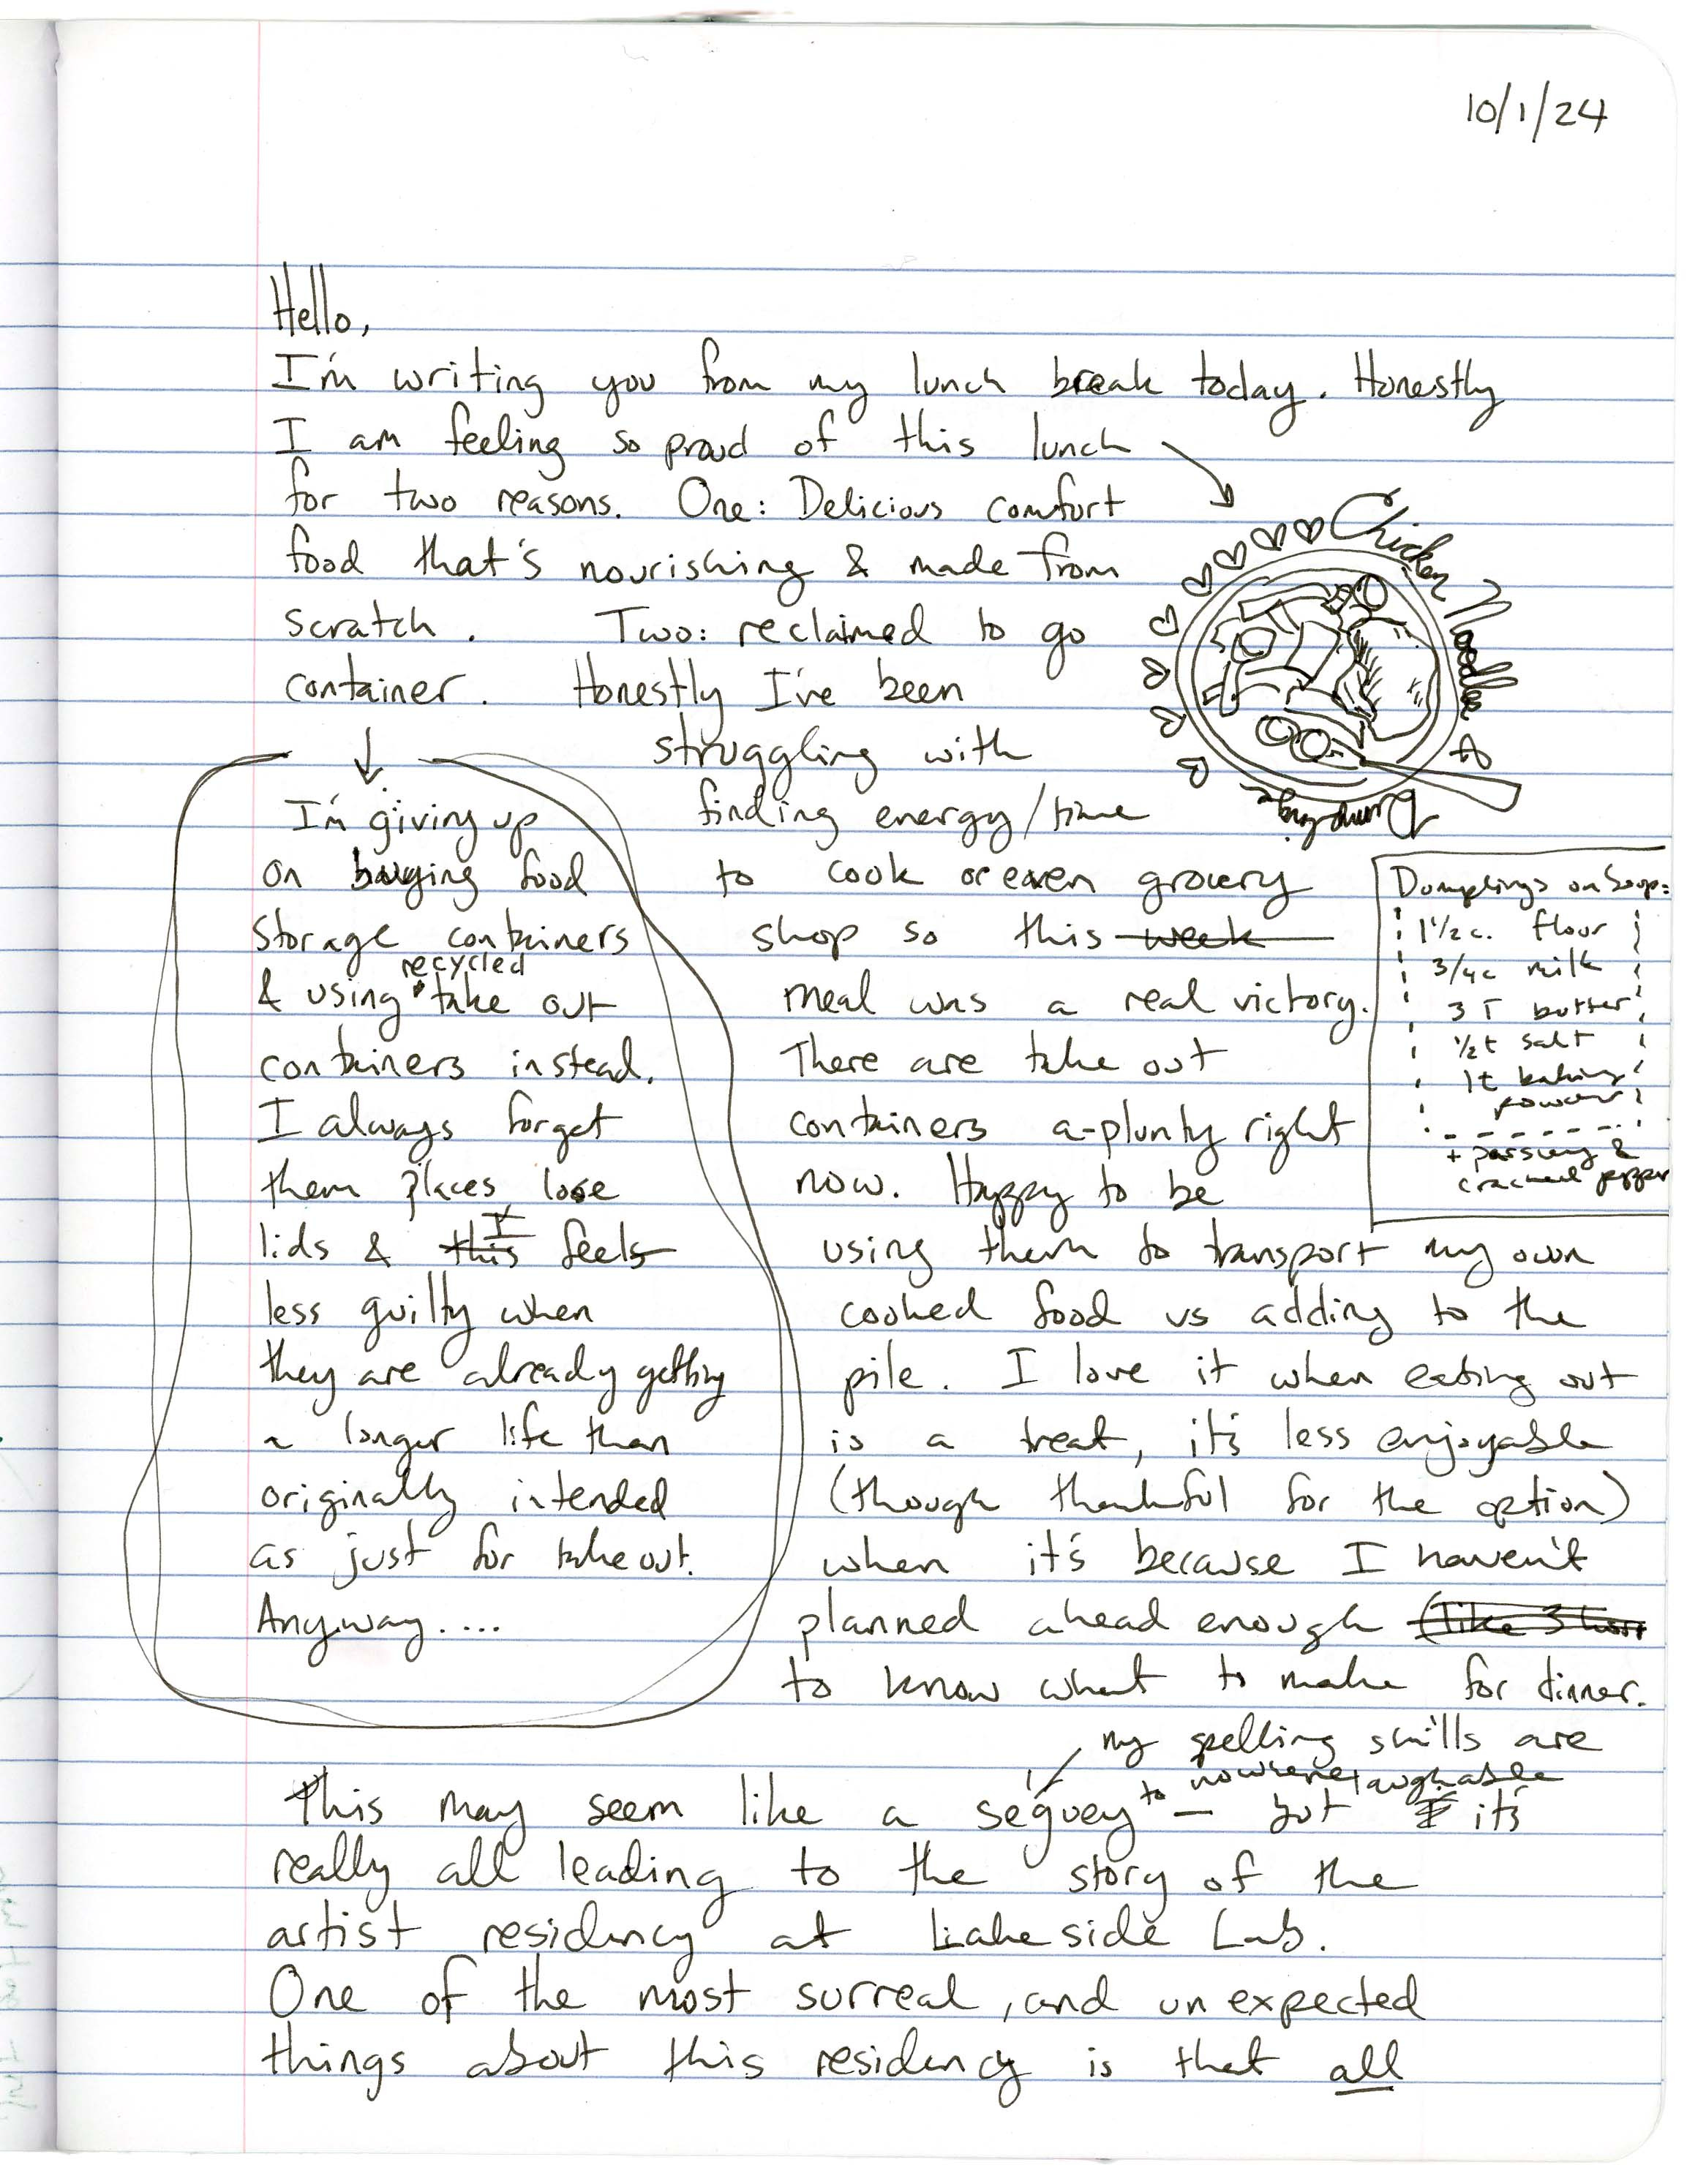 10/1/24
Hello,
I'm writing you from my lunch break today. Honestly
I am feeling so proud of this lunch
for two reasons. One: Delicious comfort
food that's nourishing & made from
scratch. Two: reclaimed to go
container. Honestly I've been
struggling with
finding energy/time
to cook or even grocery
shop so this week
meal was a real victory.
There are take out
containers a-plunty right
now. Happy to be
using them to transport my own
cooked food vs adding to the
pile. I love it when eating out
is a treat, it's less enjoyable
(though thankful for the option)
when it's because I haven't
planned ahead enough (like 3 hour
to know what to make for dinner.
Chicken Noodles & Dumplings
Dumplings on Soup:
1 1/2 c. flour
3/4 c milk
3 T butter
1/2 t salt
1t baking
powder
+ parsley &
cracked pepper
I'm giving up
on buying food
storage containers
recycled
& using take out
containers instead.
I always forget
them places, lose
I
lids & this feels
less guilty when
they are already getting
a longer life than
originally intended
as just for takeout.
Anyway....
my spelling skills are
laughable
This may seem like a seguey to nowhere — but it's
really all leading to the story of the
artist residency at Lakeside Lab.
One of the most surreal, and unexpected
things about this residency is that all